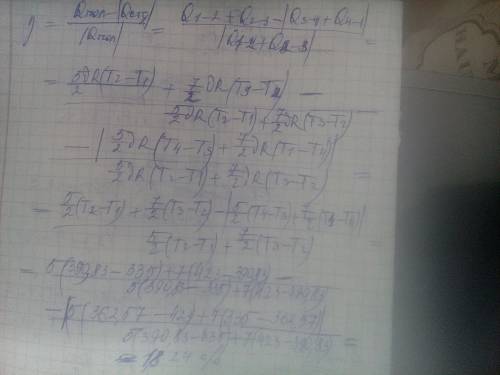 η = Qпол - |Qотд| / |Qпол| = Q1-2 + Q2-3 - |Q3-4 + Q4-1| / |Q1-2 + Q2-3| =
= 5/2 νR(T2-T1) + 7/2 νR(T3-T2) -
5/2 νR(T2-T1) + 7/2 νR(T3-T2)
- | 5/2 νR(T4-T3) + 7/2 νR(T1-T4) |
5/2 νR(T2-T1) + 7/2 νR(T3-T2) =
= 5/2 (T2-T1) + 7/2 (T3-T2) - | 5/2 (T4-T3) + 7/2 (T1-T4) |
5/2 (T2-T1) + 7/2 (T3-T2) =
= 5(390,83-335) + 7(423-390,83) -
5(390,83-335) + 7(423-390,83)
- |5(362,57-423) + 7(335-362,57)|
5(390,83-335) + 7(423-390,83) =